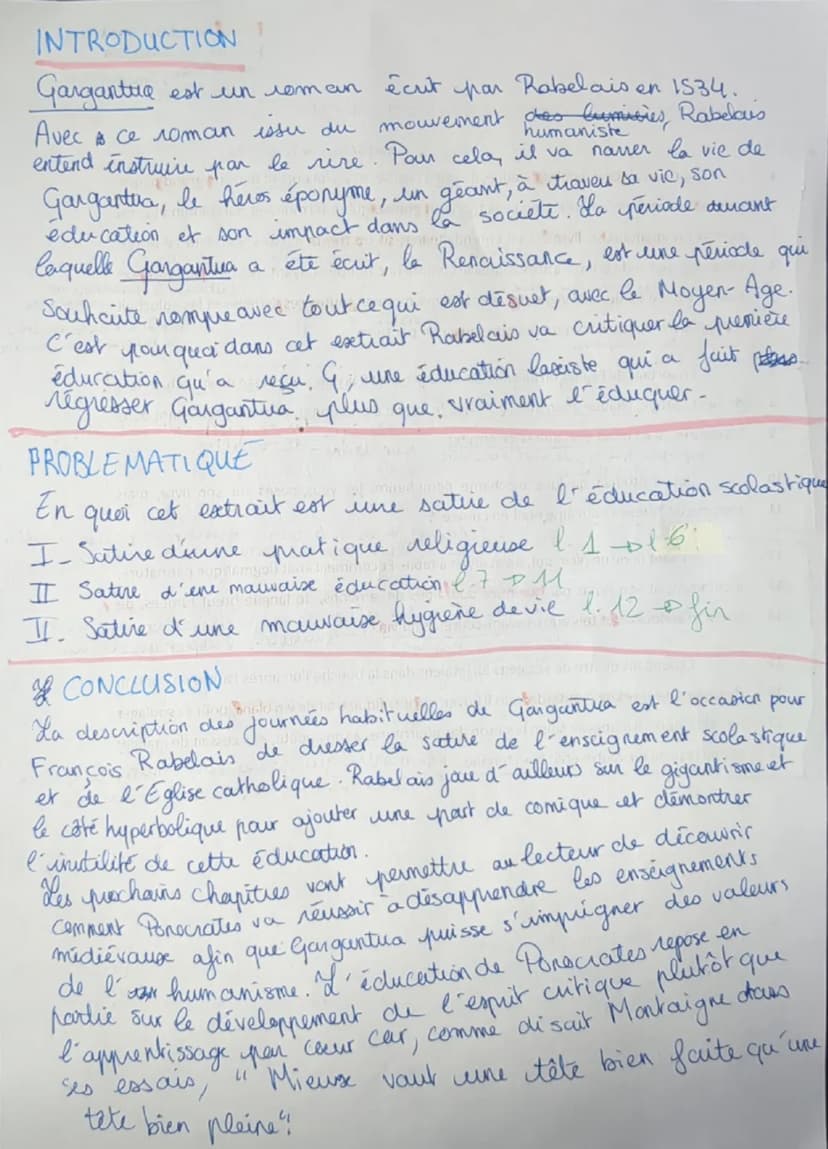 INTRODUCTION
Gargantua est un roman écrit par Rabelais en 1534.
Avec ce roman issu du mouvement des lumières, Rabelais
humaniste
entend instruire par le rire. Pour cela, il va narrer la vie de
Gargantua, le héros éponyme, un géant, à travers sa vie, son
éducation et son impact dans la société. La période durant
laquelle Gargantua a été écrit, la Renaissance, est une période qui
souhaite rompre avec tout ce qui est désuet, avec le Moyen-Age.
C'est pourquoi dans cet extrait Rabelais va critiquer la première
éducation qu'a reçu G, une éducation laxiste qui a fait
régresser Gargantua plus que vraiment l'éduquer.
PROBLEMATIQUE
En quoi cet extrait est une satire de l'éducation scolastique
I- Satire d'une pratique religieuse l.1 → l.6
II Satire d'une mauvaise éducation l.7 → 11
II. Satire d'une mauvaise hygiène de vie l.12 → fin
CONCLUSION
La description des journées habituelles de Gargantua est l'occasion pour
François Rabelais de dresser la satire de l'enseignement scolastique
et de l'Eglise catholique. Rabelais joue d'ailleurs sur le gigantisme et
le côté hyperbolique pour ajouter une part de comique et démontrer
l'inutilité de cette éducation.
Les prochains chapitres vont permettre au lecteur de découvrir
comment Ponocrates va réussir à désapprendre les enseignements
médiévaux afin que Gargantua puisse s'imprégner des valeurs
de l'humanisme. L'éducation de Ponocrates repose en
partie sur le développement de l'esprit critique plutôt que
l'apprentissage par cœur car, comme disait Montaigne dans
ses essais, "Mieux vaut une tête bien faite qu'une
tête bien pleine".